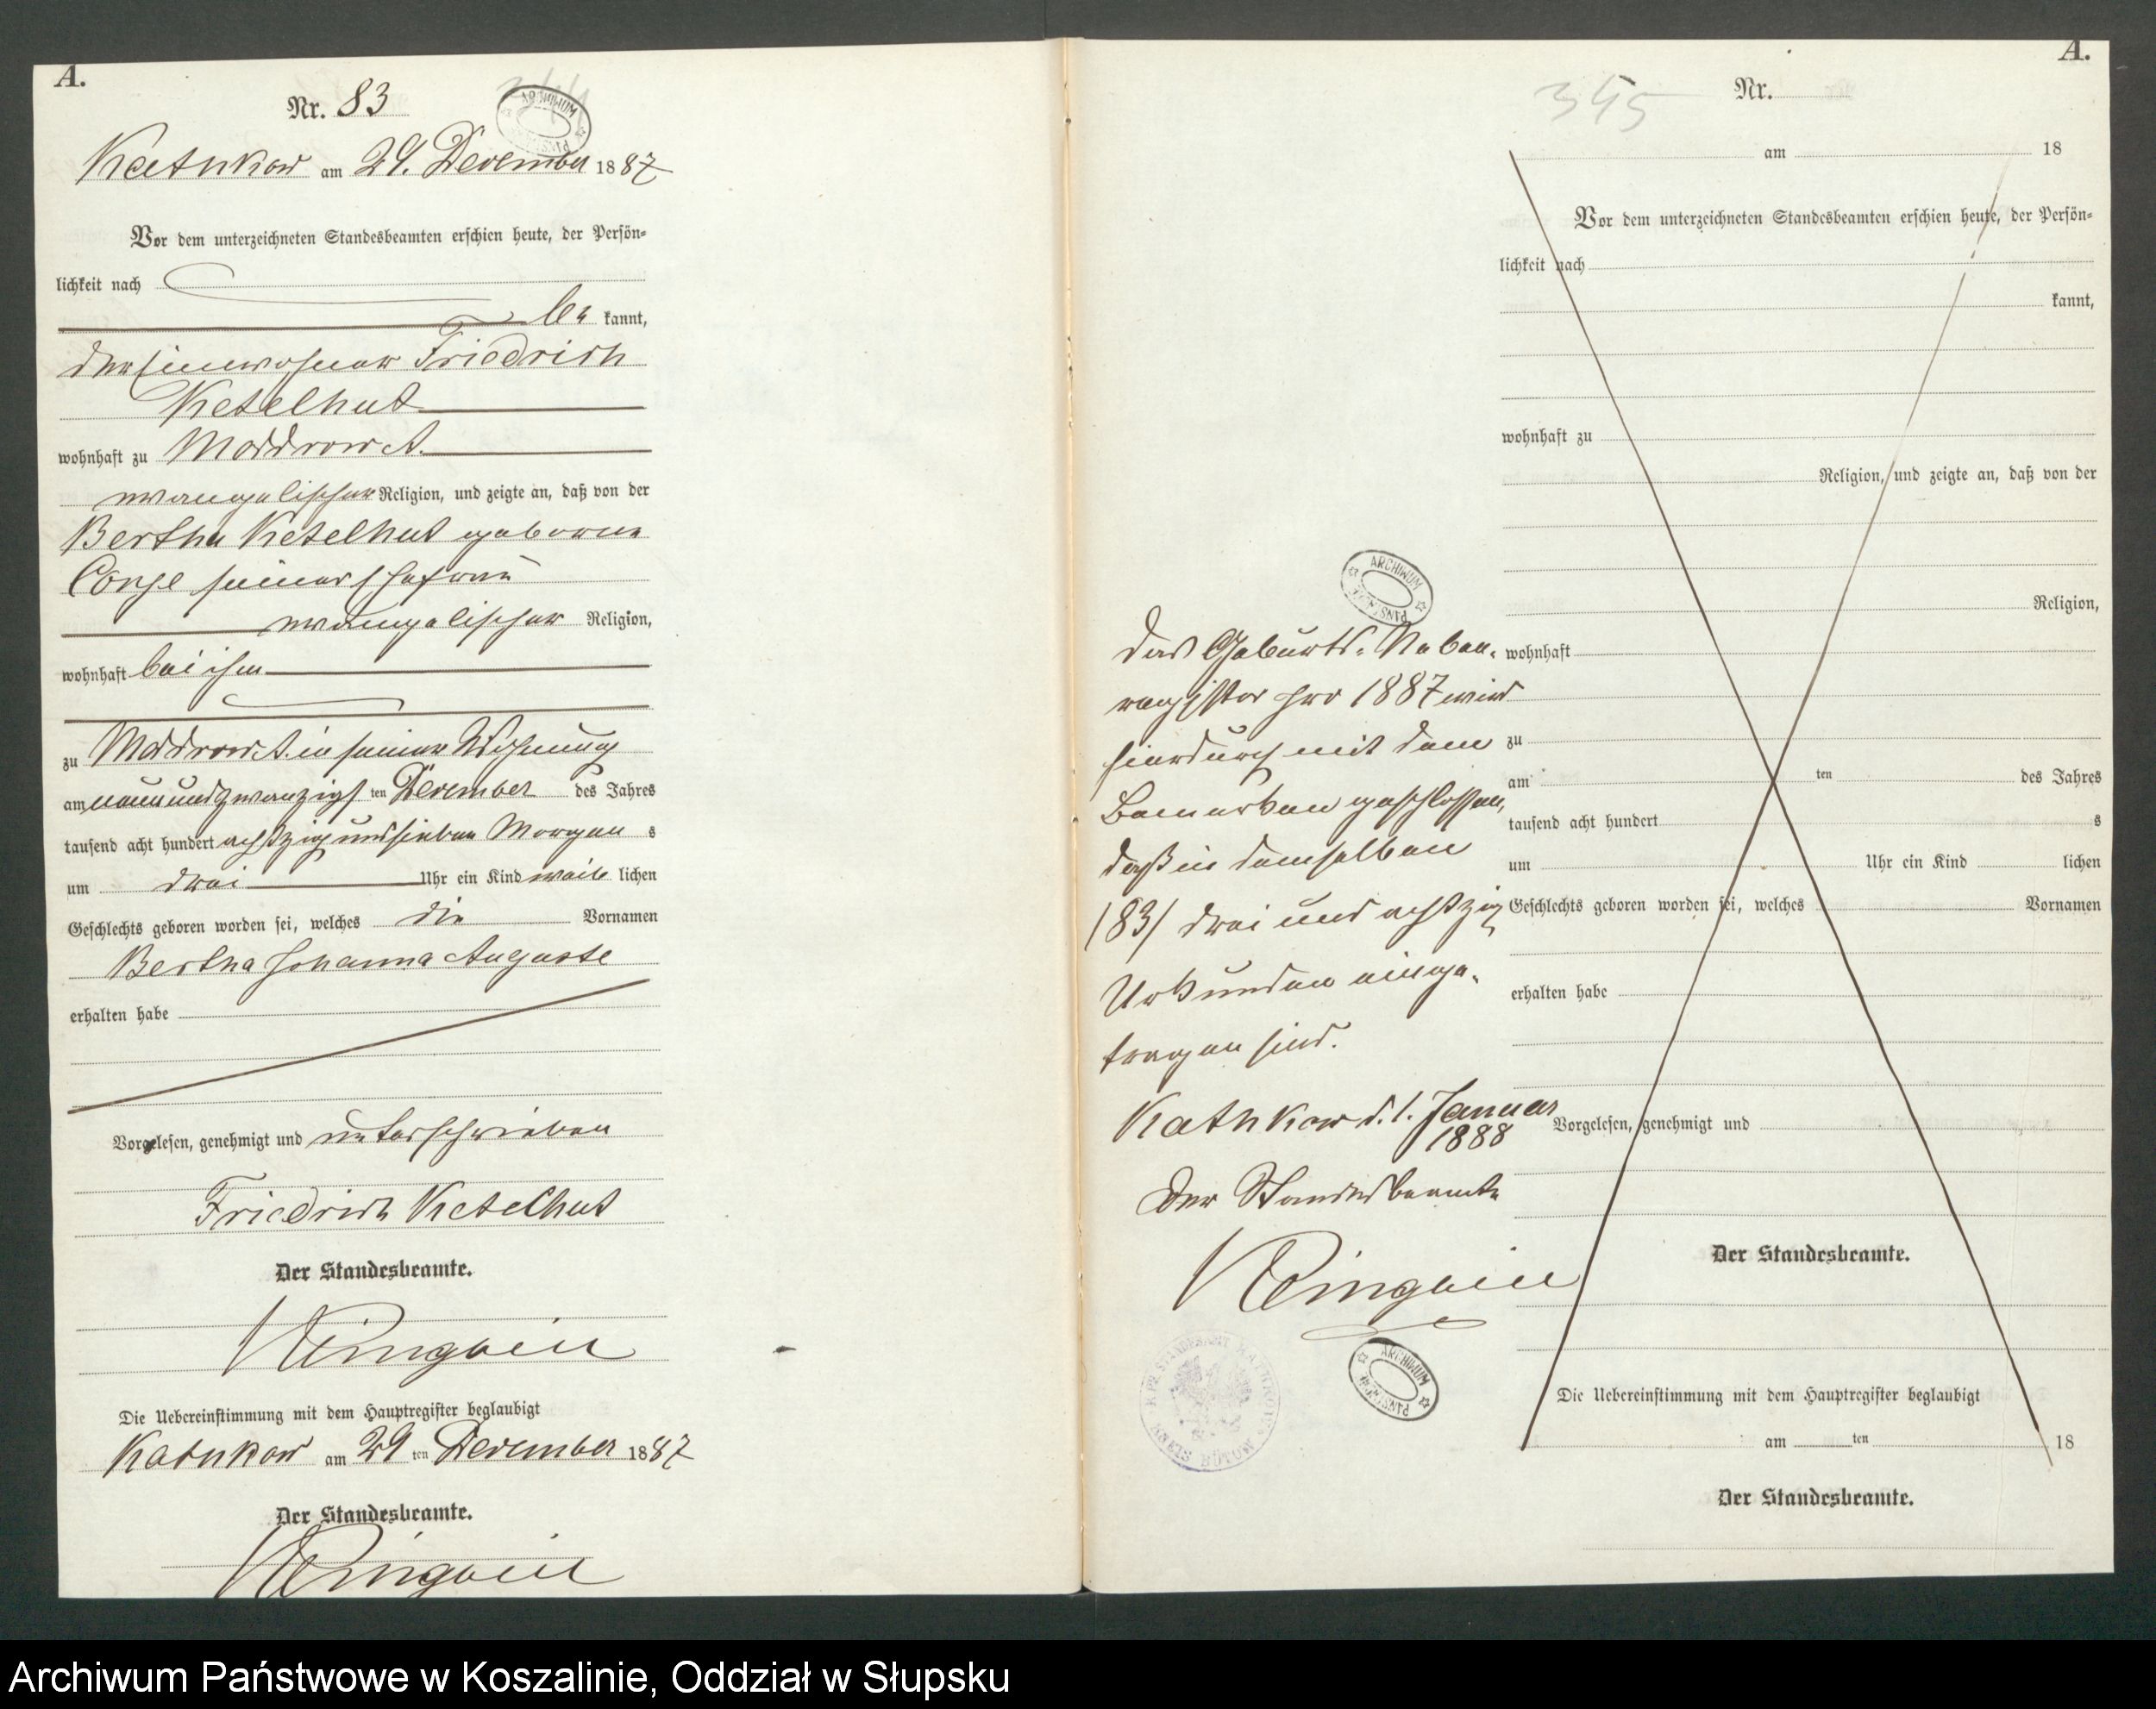 A.
Nr. 83
ARCHIWUM
Kathkow am 29. December 1887
Vor dem unterzeichneten Standesbeamten erschien heute, der Persön=
lichkeit nach
be kannt,
der Einwohner Friedrich
Ketelhut
wohnhaft zu Moddrow A.
evangelischer Religion, und zeigte an, daß von der
Bertha Ketelhut geborene
seiner Ehefrau
evangelischer Religion,
wohnhaft bei ihm
zu Moddrow A. in seiner Wohnung
am neunundzwanzigsten December des Jahres
tausend acht hundert achtzig und sieben Morgens
um drei Uhr ein Kind weiblichen
Geschlechts geboren worden sei, welches die Vornamen
Bertha Johanna Auguste
erhalten habe
Vorgelesen, genehmigt und unterschrieben
Friedrich Ketelhut
Der Standesbeamte.
Die Uebereinstimmung mit dem Hauptregister beglaubigt
Kathkow am 29ten December 1887
Der Standesbeamte.
A.
345
Nr.
am 18
Vor dem unterzeichneten Standesbeamten erschien heute, der Persön=
lichkeit nach
kannt,
wohnhaft zu
Religion, und zeigte an, daß von der
Religion,
wohnhaft
zu
am ten des Jahres
tausend acht hundert s
um Uhr ein Kind lichen
Geschlechts geboren worden sei, welches Vornamen
erhalten habe
Vorgelesen, genehmigt und
Der Standesbeamte.
Die Uebereinstimmung mit dem Hauptregister beglaubigt
am ten 18
Der Standesbeamte.
ARCHIWUM
Das Geburts-Neben-
register pro 1887 wird
hierdurch mit dem
Bemerken geschlossen,
daß in demselben
/83/ drei und achtzig
Urkunden einge-
tragen sind.
Kathkow d. 1. Januar
1888
Der Standesbeamte
KREIS BÜTOW
ARCHIWUM
Archiwum Państwowe w Koszalinie, Oddział w Słupsku